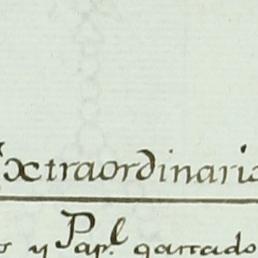 Extraordinario
s y Pap.l gastado